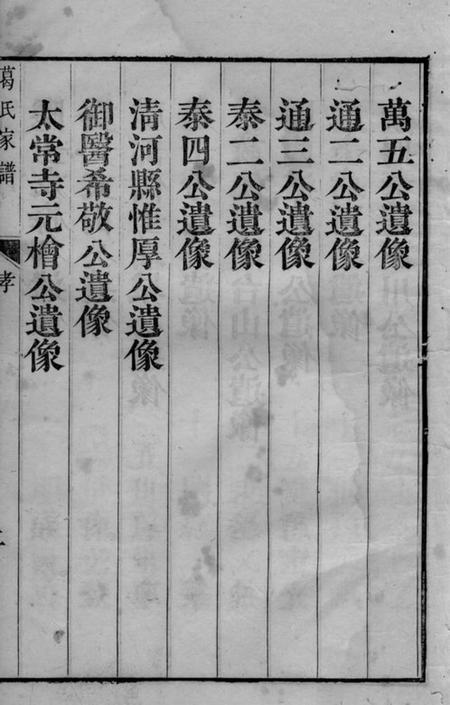 萬五公遺像
通二公遺像
通三公遺像
泰二公遺像
泰四公遺像
清河縣惟厚公遺像
御醫希敬公遺像
太常寺元檜公遺像
葛氏家譜
孝